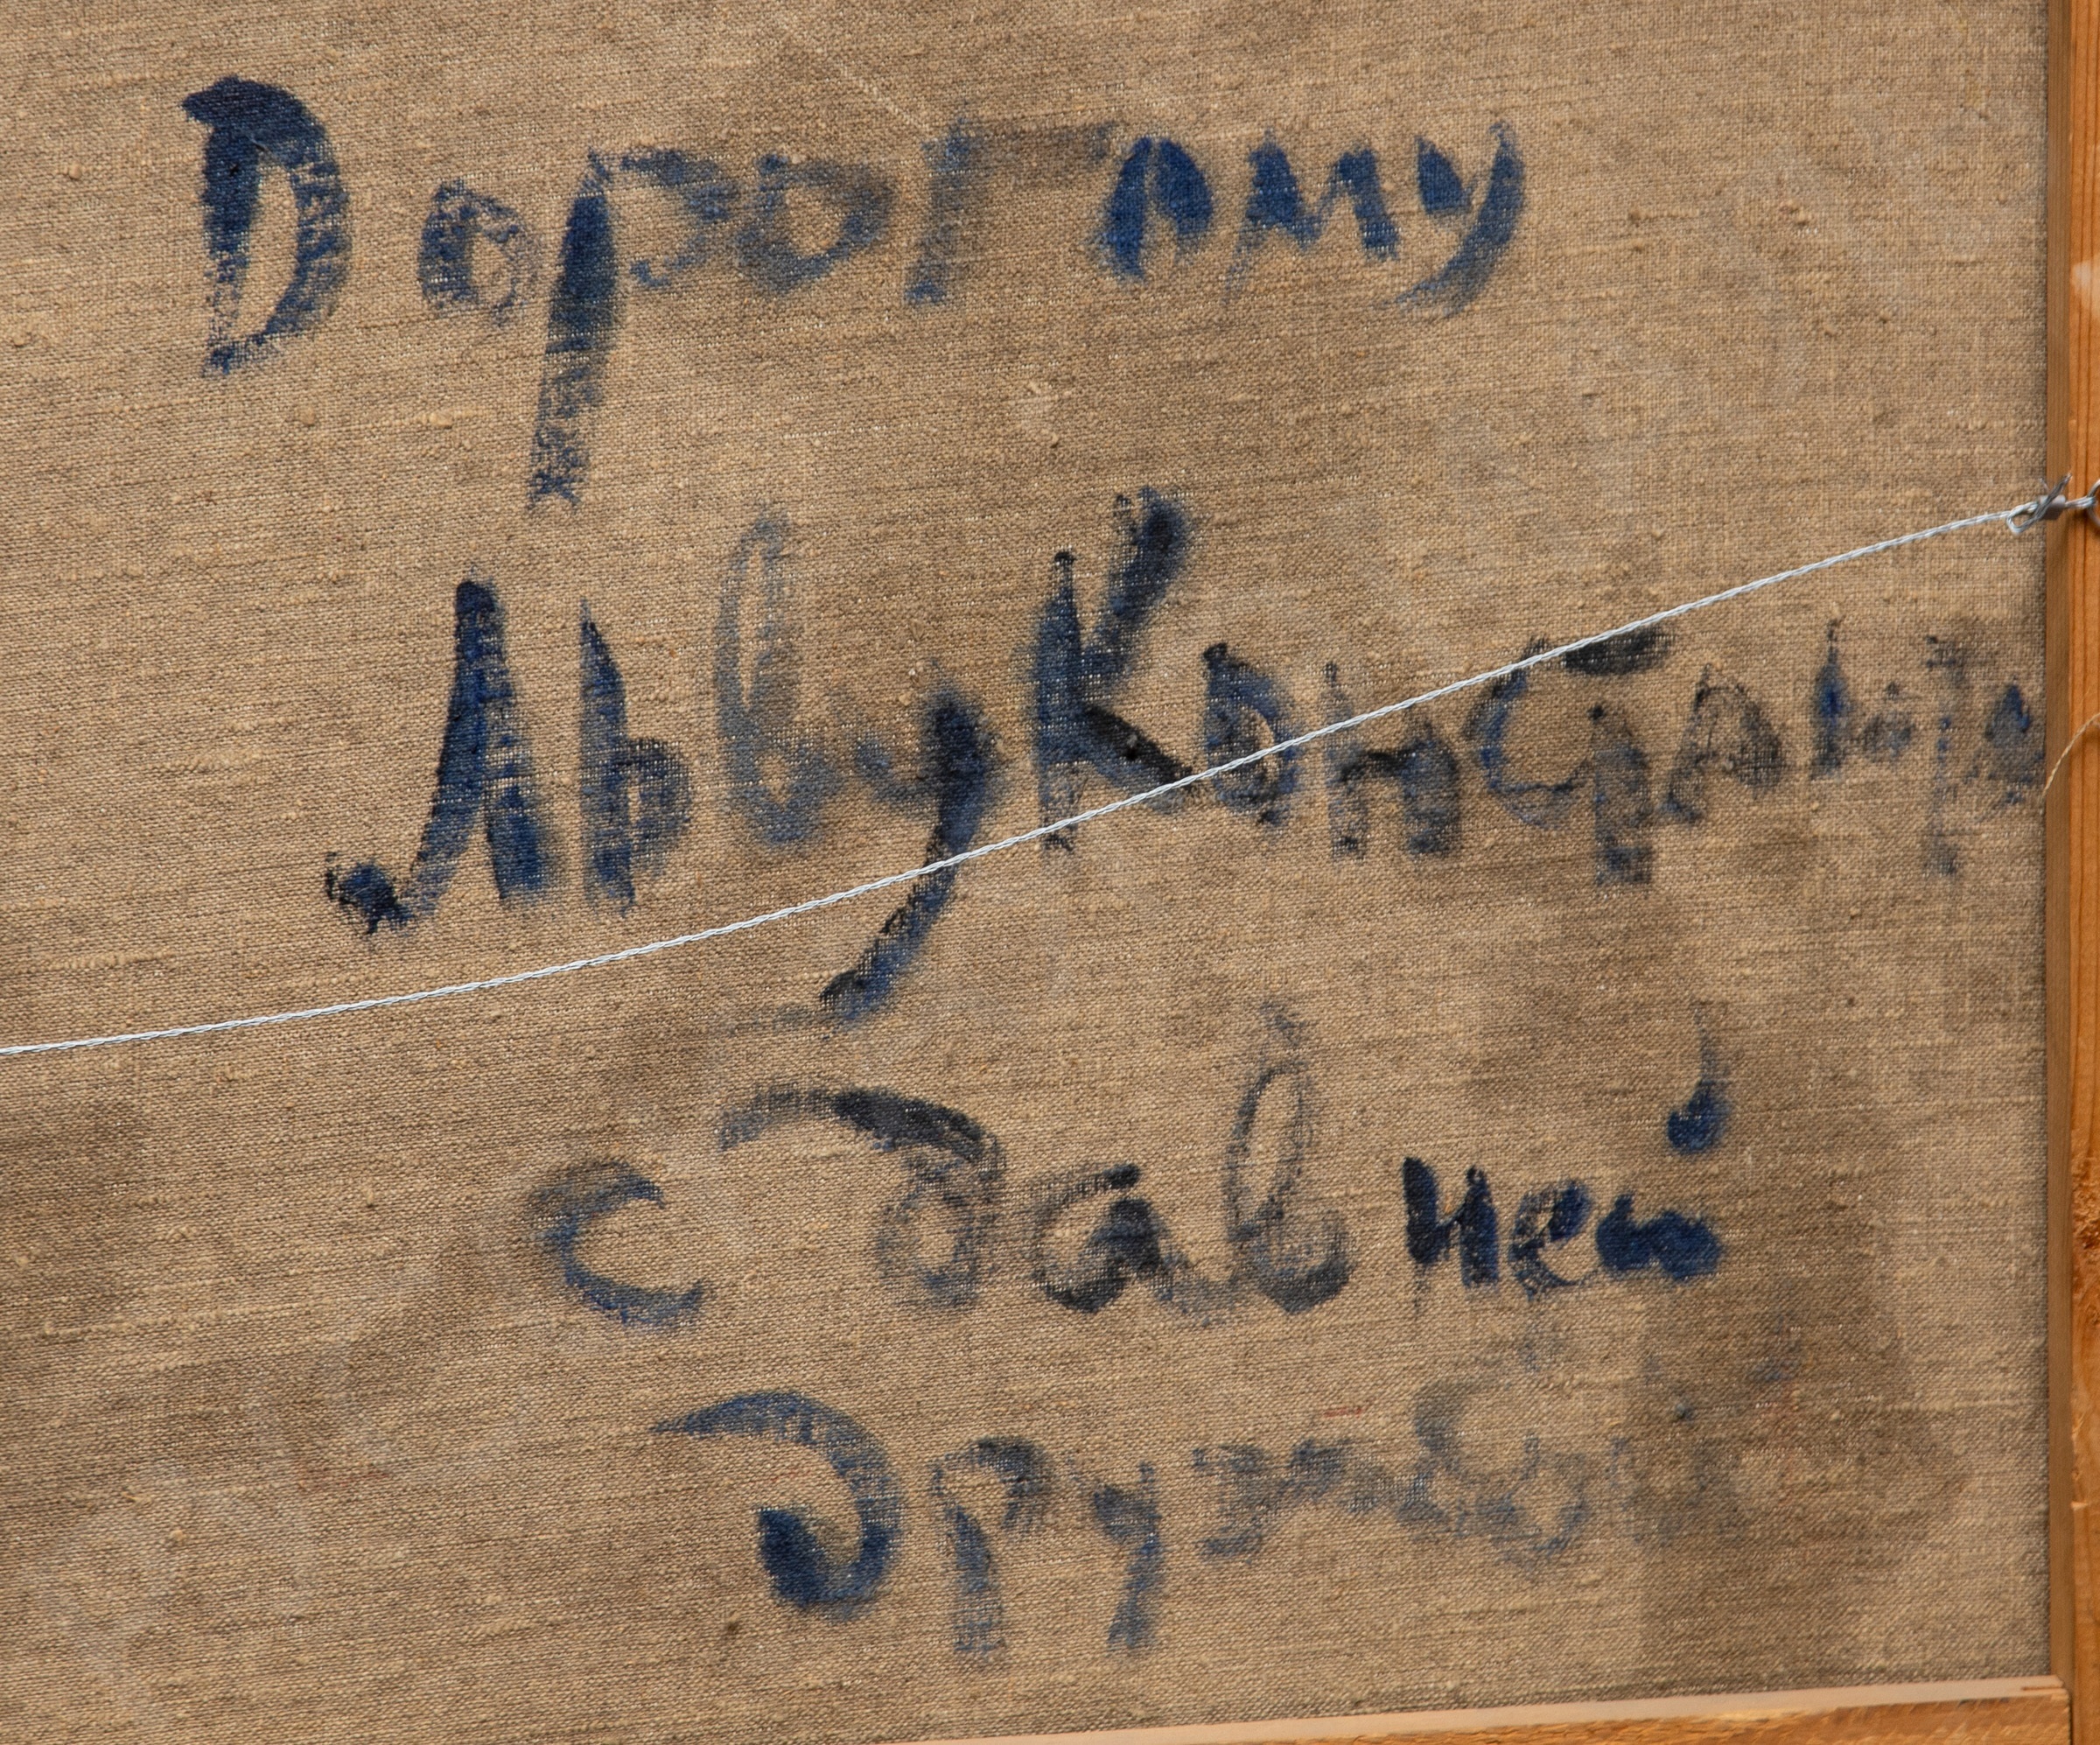 Дорогому
Льву Констант
с давней
дружбой